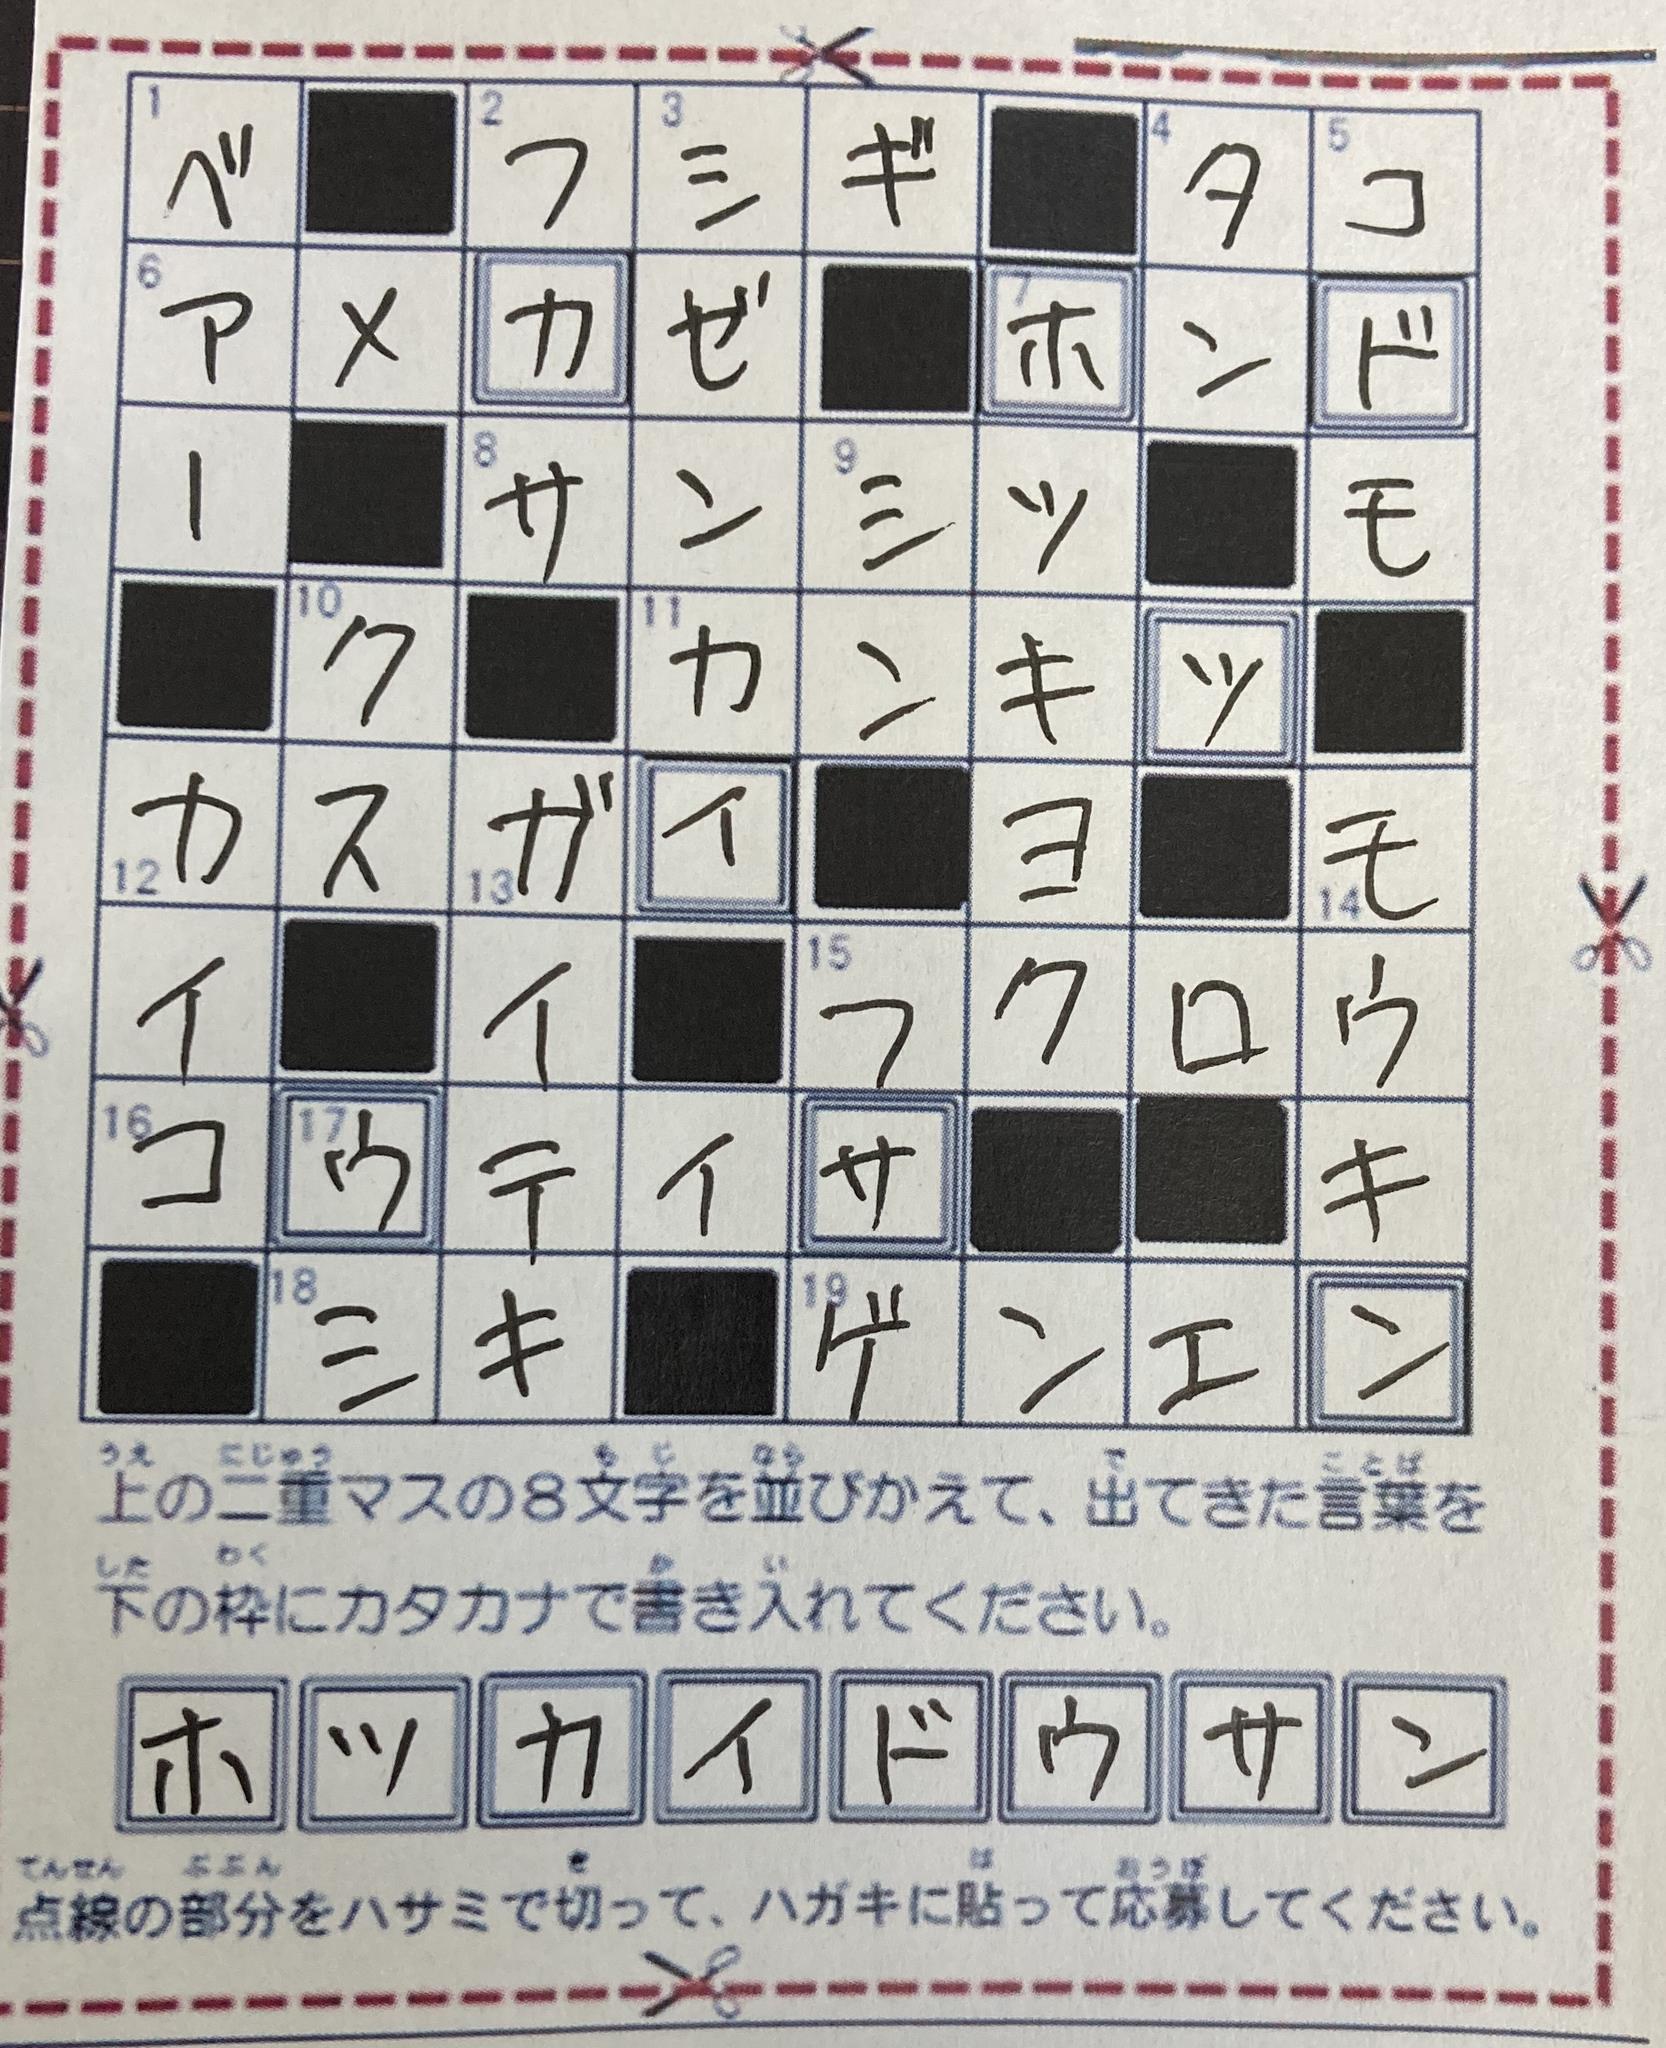 1 ベ 2 フ 3 シ ギ 4 タ 5 コ
6 ア メ カ ゼ 7 ホ ン ド
ー 8 サ ン 9 シ ツ モ
10 ク 11 カ ン キ ツ
12 カ ス 13 ガ イ ヨ 14 モ
イ イ 15 フ ク ロ ウ
16 コ 17 ウ テ イ サ キ
18 シ キ 19 ゲ ン エ ン
うえ にじゅう もじ なら で ことば
上の二重マスの8文字を並びかえて、出てきた言葉を
した わく か い
下の枠にカタカナで書き入れてください。
ホ ツ カ イ ド ウ サ ン
てんせん ぶぶん き は おうぼ
点線の部分をハサミで切って、ハガキに貼って応募してください。